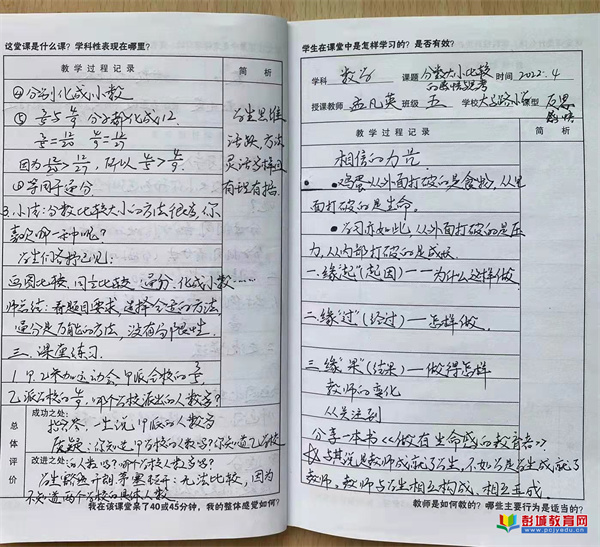 这堂课是什么课？学科性表现在哪里？
教学过程记录
简析
④分别化成小数
⑤ 3/5与4/9 分子都化成12.
3/5=12/20 4/9=12/27
因为12/20>12/27, 所以3/5>4/9.
⑥等同于通分
学生思维
活跃,方法
灵活多样
3.小结:分数比较大小的方法很多,你
喜欢哪一种呢？
学生们各抒己见:
画图比较 通分、化成小数……
师总结:看题目要求,选择合适的方法
通分是万能的方法,没有局限性.
三、课堂练习.
1.甲、乙参加运动会,甲派全校的
乙派全校的 哪个学校派出的人数多？
总体评价
成功之处:
抢答 一生说:甲派的人数多
质疑:你知道甲学校的人数吗？你知道乙学校
改进之处:
的人数吗？哪个学校人数多吗？
学生豁然开朗 无法比较,因为
不知道两个学校的具体人数
我在该课堂呆了40或45分钟，我的整体感觉如何？
学生在课堂中是怎样学习的？是否有效？
学科 数学 课题 分数大小比较 时间 2022.4
授课教师 孟凡英 班级 五 学校 大学路小学 课型 反思
教学过程记录
简析
相信的力量
●鸡蛋从外面打破的是食物,从里
面打破的是生命.
●学习亦如此,从外面打破的是压
力,从内部打破的是成长.
一.缘“起”(起因)——为什么这样做.
二.缘“过”(经过)—怎样做.
三.缘“果”(结果)—做得怎样
教师的变化
从关注到
分享一本书《做有生命感的教育者》
与其说是教师成就了学生,不如说是学生成就了
教师.教师与学生相互构成、相互生成.
教师是如何教的？哪些主要行为是适当的？
彭城教育网
www.pcjyedu.cn